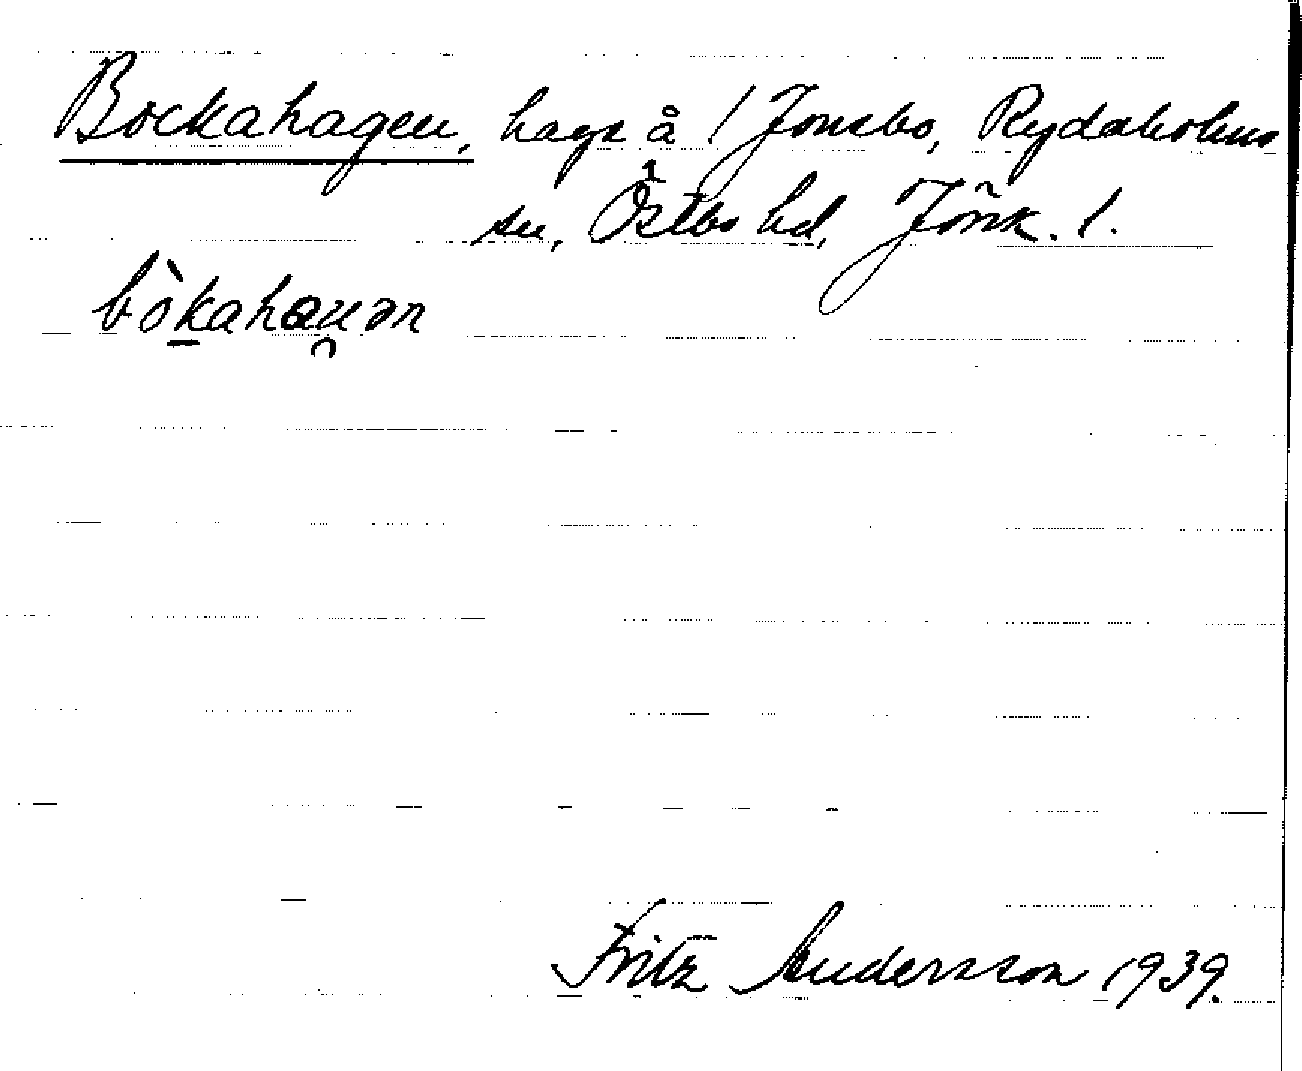 Bockahagen, hage å / Jonsbo, Rydaholms
sn, Östbo hd, Jönk. l.
bòkahauən
Fritz Andersson 1939.